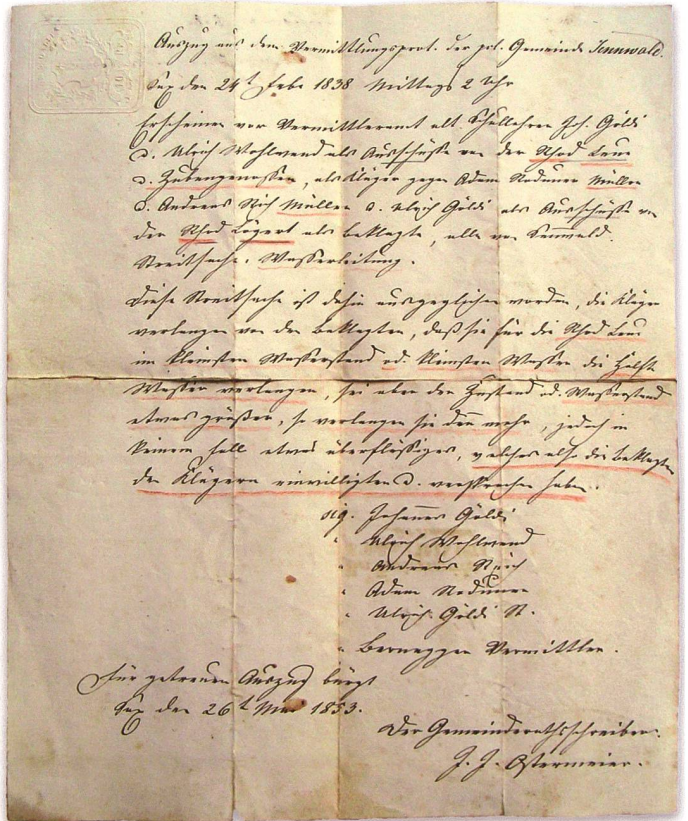 Auszug aus dem Vermittlungsprot. der pol. Gemeinde Sennwald.
Sax den 24t Febr 1838 Mittags 2 Uhr
Erscheinen vor Vermittleramt alt Schullehrer Joh. Göldi
u. Ulrich Wohlwend als Ausschüsse von der Rhod Lenu
u. Zubengenossen, als Kläger gegen Adam Roduner Müller
u. Andreas Rich Müller u. Ulrich Göldi als Ausschüsse von
der Rhod Lögert als beklagte, alle von Sennwald.
Streitsache. Wasserleitung.
Diese Streitsache ist dahin ausgeglichen worden, die Kläger
verlangen von den beklagten, daß sie für die Rhod
im kleinsten Wasserstand od. kleinsten Wasser die Hälfte
Wasser verlangen, sei aber der Zustand od. Wasserstand
etwas größer, so verlangen sie den mehr, jedoch in
keinem fall etwas überflüssiges, welches also die beklagten
den Klägern einwilligten u. versprochen haben.
sig. Johannes Göldi
" Ulrich Wohlwend
" Andreas Reich
" Adam Roduner
" Ulrich Göldi
" Bernegger Vermittler.
Für getreuen Auszug bürgt
Sax den 26t Mai 1853.
Der Gemeinderathsschreiber.
J. J. Ostermeier.